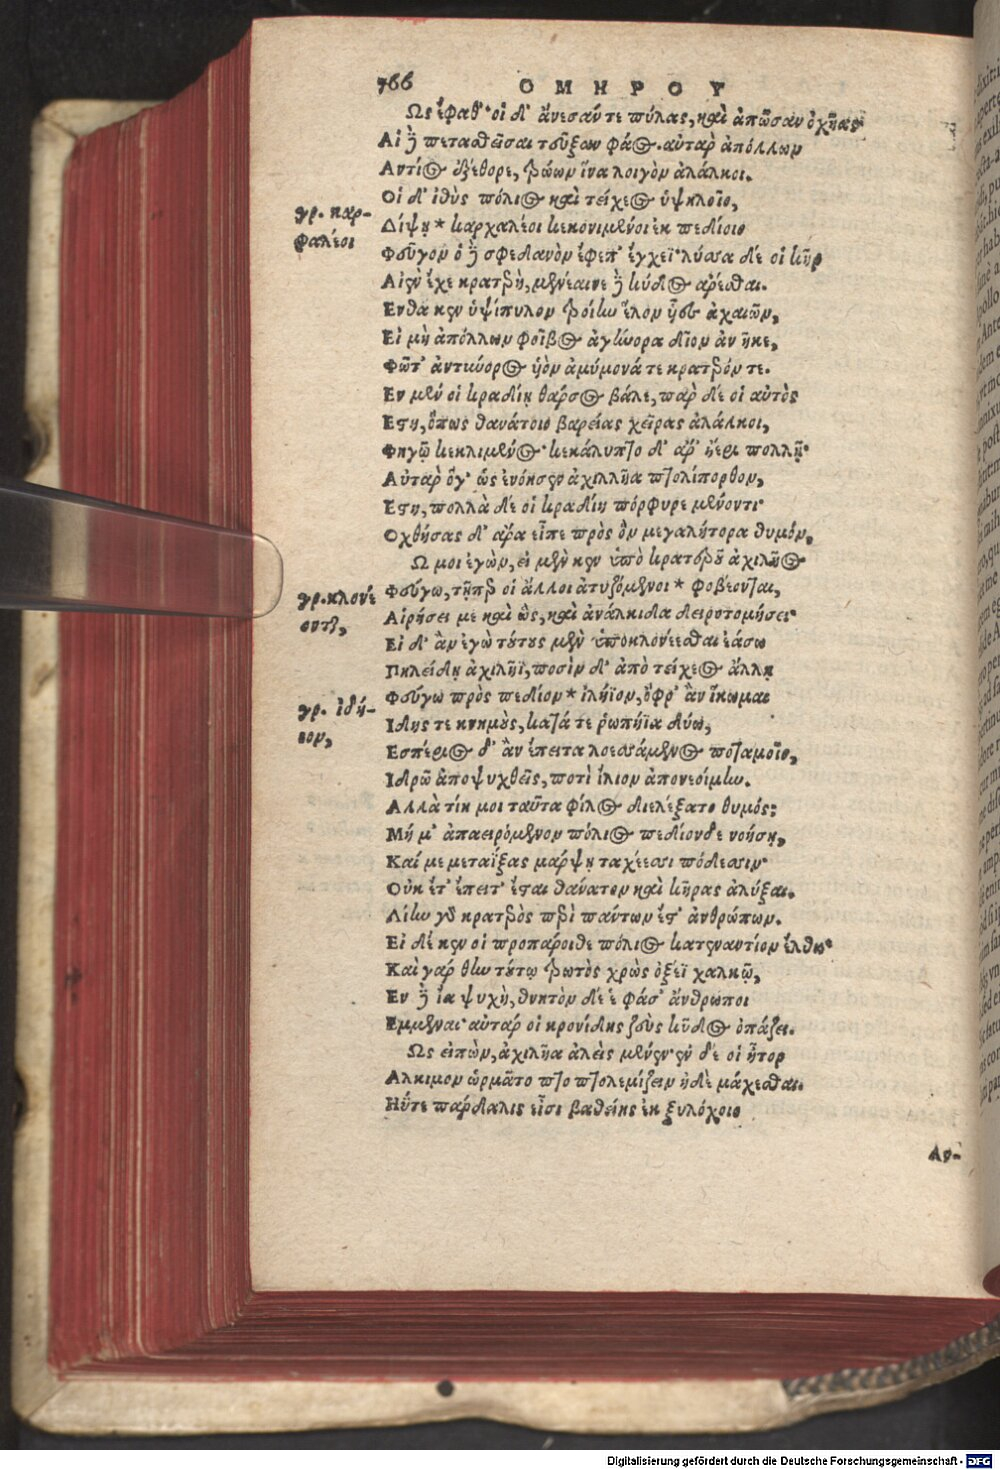 766 ΟΜΗΡΟΥ
Ως ἔφαθ'· οἱ δ' ἄνεσάν τε πύλας, καὶ ἀπῶσαν ὀχῆας·
Αἱ δὲ πετασθεῖσαι τεῦξαν φάος. αὐτὰρ ἀπόλλων
Αντίος ἐξέθορε, τρώων ἵνα λοιγὸν ἀλάλκοι.
Οἱ δ' ἰθὺς πόλιος καὶ τείχεος ὑψηλοῖο,
γρ. καρ-
φαλέοι
Δίψῃ * καρχαλέοι κεκονιμένοι ἐκ πεδίοιο
Φεῦγον ὁ δὲ σφεδανὸν ἔφεπ' ἔγχεϊ· λύσσα δέ οἱ κῆρ
Αἰὲν ἔχε κρατερὴ, μενέαινε δὲ κύδος ἀρέσθαι.
Ενθα κεν ὑψίπυλον τροίην ἕλον ἧες ἀχαιῶν,
Εἰ μὴ ἀπόλλων φοῖβος ἀγήνορα δῖον ἀνῆκε,
Φῶτ' ἀντήνορος ἱὸν ἀμύμονά τε κρατερόν τε.
Εν μέν οἱ κραδίῃ θάρσος βάλε, παρ δέ οἱ αὐτὸς
Εστη, ὅπως θανάτοιο βαρείας χεῖρας ἀλάλκοι,
Φηγῷ κεκλιμένος· κεκάλυπτο δ' ἄρ' ἠέρι πολλῇ·
Αὐτὰρ ὅγ' ὡς ἐνόησεν ἀχιλλῆα πτολίπορθον,
Εστη, πολλὰ δέ οἱ κραδίη πόρφυρε μένοντι·
Οχθήσας δ' ἄρα εἶπε πρὸς ὃν μεγαλήτορα θυμόν,
Ω μοι ἐγὼν, εἰ μέν κεν ὑπὸ κρατεροῦ ἀχιλῆος
γρ. κλονέ
οντζ,
Φεύγω, τῇπερ οἱ ἄλλοι ἀτυζόμενοι * φοβέονται,
Αἱρήσει με καὶ ὣς, καὶ ἀνάλκιδα δειροτομήσει·
Εἰ δ' ἂν ἐγὼ τούτους μὲν ὑποκλονέεσθαι ἐάσω
Πηλείδῃ ἀχιλῆϊ, ποσὶν δ' ἀπὸ τείχεος ἄλλῃ
γρ. ἰδή-
ιον,
Φεύγω πρὸς πεδίον * ἰλήϊον, ὄφρ' ἂν ἵκωμαι
Ιδης τε κνημοὺς, κατά τε ῥωπήϊα δύω,
Εσπέριος δ' ἂν ἔπειτα λοεσσάμενος ποταμοῖο,
Ιδρῶ ἀποψυχθεὶς, ποτὶ ἴλιον ἀπονεοίμην.
Αλλὰ τίη μοι ταῦτα φίλος διελέξατο θυμός;
Μή μ' ἀπαειρόμενον πόλιος πεδίονδε νοήσῃ,
Καί με μεταΐξας μάρψῃ ταχέεσσι πόδεσσιν·
Οὐκ ἔτ' ἔπειτ' ἔσται θάνατον καὶ κῆρας ἀλύξαι.
Λίην γὰρ κρατερὸς περὶ πάντων ἔστ' ἀνθρώπων.
Εἰ δέ κεν οἱ προπάροιθε πόλιος κατεναντίον ἔλθω·
Καὶ γάρ θην τούτῳ τρωτὸς χρὼς ὀξέϊ χαλκῷ,
Εν δὲ ἴα ψυχὴ, θνητὸν δέ ἑ φάσ' ἄνθρωποι
Εμμεναι· αὐτάρ οἱ κρονίδης ζεὺς κῦδος ὀπάζει.
Ως εἰπὼν, ἀχιλῆα ἀλεὶς μένεν· ἐν δέ οἱ ἦτορ
Αλκιμον ὡρμᾶτο πτοπτολεμίζειν ἠδὲ μάχεσθαι.
Ηΰτε πάρδαλις εἶσι βαθείης ἐκ ξυλόχοιο
Αν-
Digitalisierung gefördert durch die Deutsche Forschungsgemeinschaft - DFG